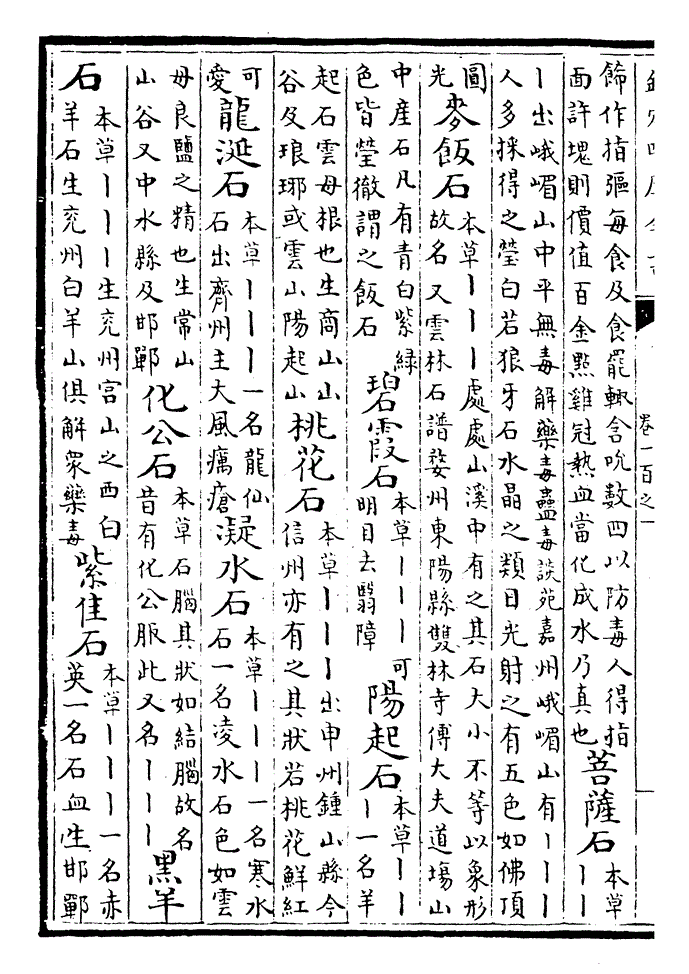 卷一百之一
飾作指彄每食及食罷輒含吮數四以防毒人得指
面許塊則價值百金㸃雞冠熱血當化成水乃真也
菩薩石
本草
丨丨
丨出峨嵋山中平無毒解藥毒蠱毒談苑嘉州峨嵋山有丨丨丨
人多採得之瑩白若狼牙石水晶之類日光射之有五色如佛頂
圖
光
麥飯石
本草丨丨丨處處山溪中有之其石大小不等以象形
故名又雲林石譜婺州東陽縣雙林寺傅大夫道塲山
中産石凡有青白紫緑
色皆瑩徹謂之飯石
碧霞石
本草丨丨丨可
明目去翳障
陽起石
本草丨丨
丨一名羊
起石雲母根也生商山山
谷及琅琊或雲山陽起山
桃花石
本草丨丨丨出申州鍾山縣今
信州亦有之其狀若桃花鮮紅
可
愛
龍涎石
本草丨丨丨一名龍仙
石出齊州主大風癘瘡
凝水石
本草丨丨丨一名寒水
石一名凌水石色如雲
毋良鹽之精也生常山
山谷又中水縣及邯鄲
化公石
本草石腦其狀如結腦故名
昔有化公服此又名丨丨丨
黒羊
石
本草丨丨丨生兖州宫山之西白
羊石生兖州白羊山俱解衆藥毒
紫佳石
本草丨丨丨一名赤
英一名石血生邯鄲